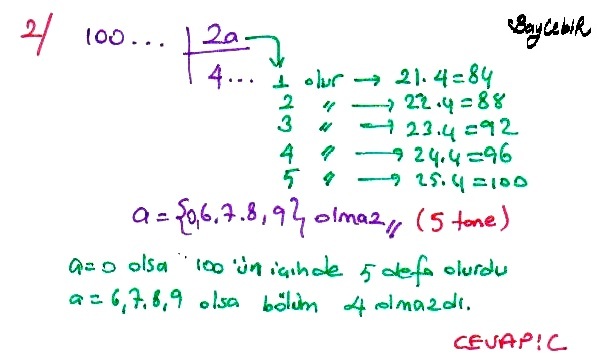 BaycebiR
2/ 100... | 2a
4...
1 olur → 21.4=84
2 " → 22.4=88
3 " → 23.4=92
4 " → 24.4=96
5 " → 25.4=100
a={0,6,7.8,9} olmaz,, (5 tane)
a=0 olsa 100'ün içinde 5 defa olurdu
a=6,7,8,9 olsa bölüm 4 olmazdı.
CEVAP!C